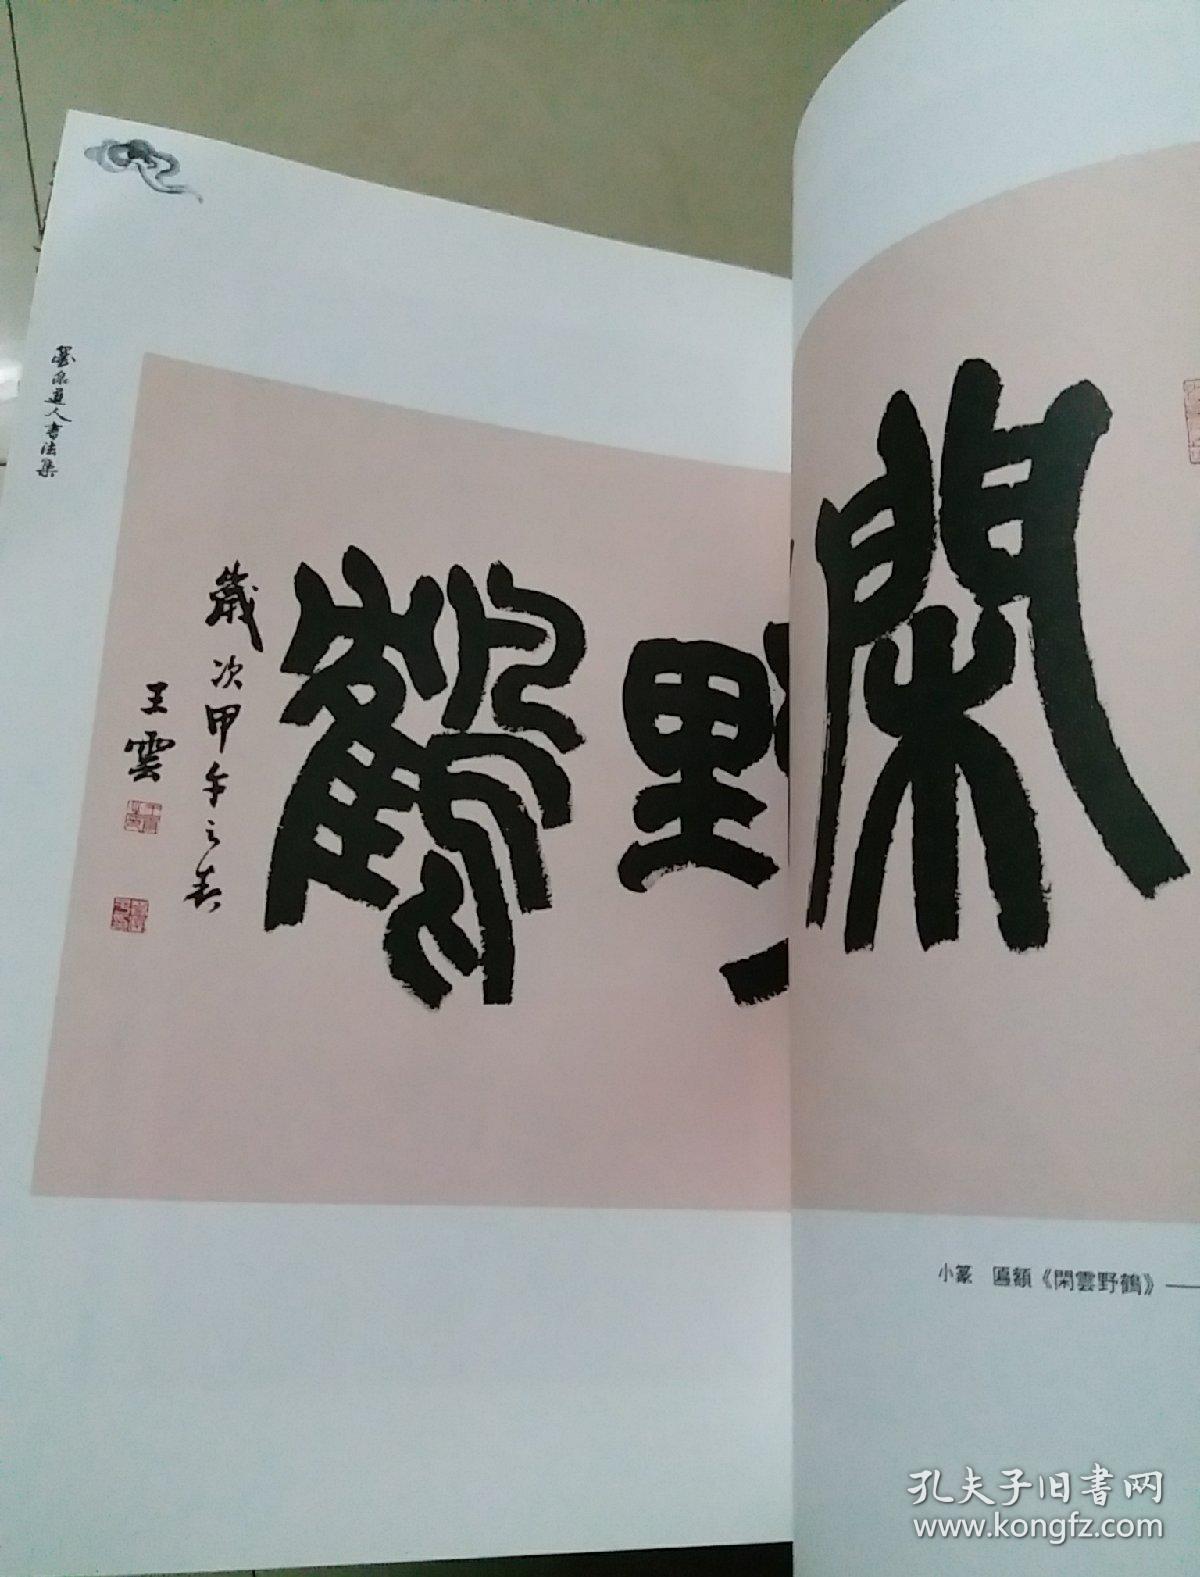 閑
野
鶴
歲次甲午之春
王雲
道人書法集
小篆 匾額《閑雲野鶴》—
孔夫子旧书网
www.kongfz.com